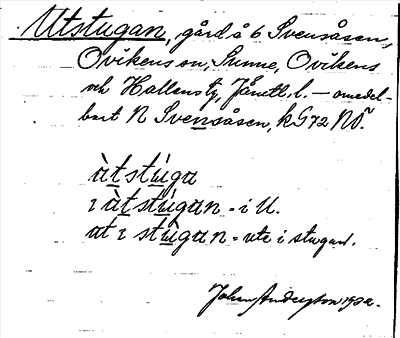 Utstugan, gård å 6 Svensåsen,
Ovikens sn, Sunne, Ovikens
och Hallens tg, Jämtl. l. – omedel-
bart N Svensåsen, k G 72 NÖ.
àtstùga
ı àtstùgan = i U.
at ı stùgan = ute i stugan.
Johan Anderson 192